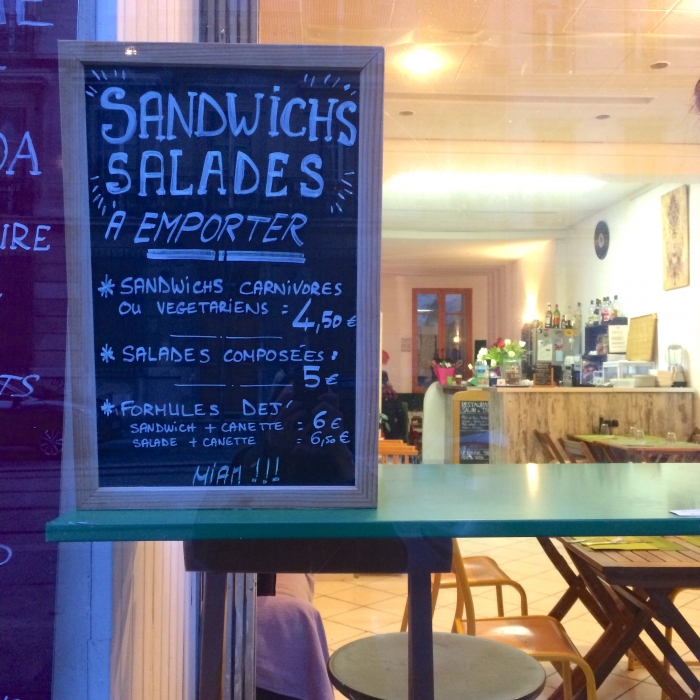 SANDWiCHS
SALADES
À EMPORTER
* SANDWiCHS CARNIVORES
OU VEGETARIENS : 4,50 €
* SALADES COMPOSÉES :
5 €
* FORMULES DEJ'
SANDWICH + CANETTE = 6 €
SALADE + CANETTE = 6,50 €
MIAM !!!
DA
IRE
TS
RESTAURANT